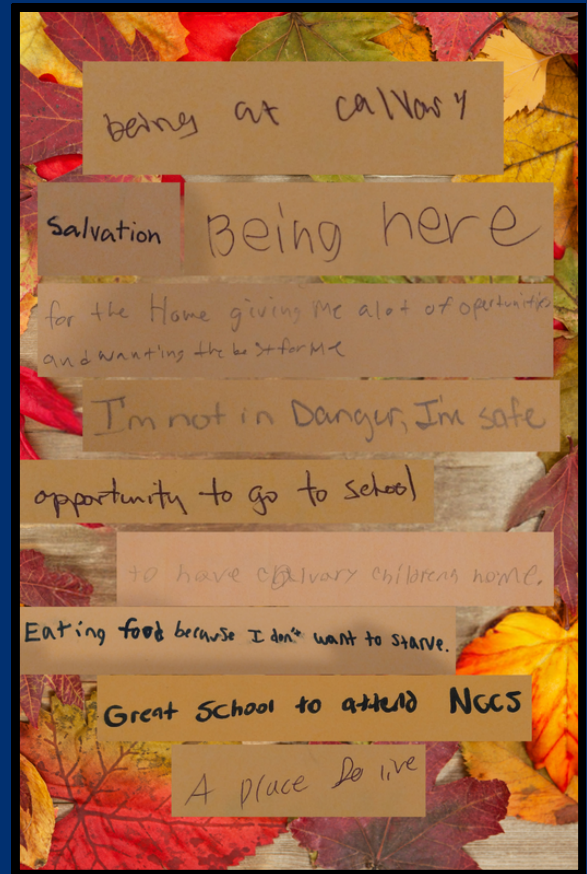 being at calvary
Salvation
Being here
for the Home giving me alot of opertunities
and wanting the best for me
I'm not in Danger, I'm safe
opportunity to go to school
to have calvary childrens home.
Eating food because I don't want to starve.
Great School to attend NGCS
A place to live